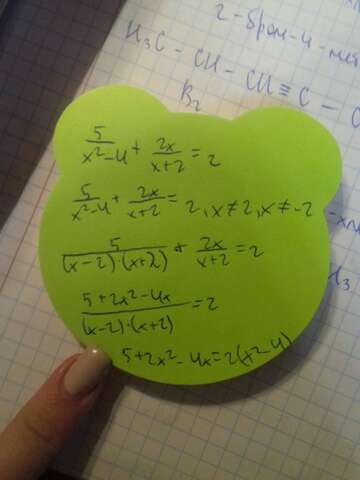 2-бром-4-мет
H₃C - CH - CH ≡ C - C
Br
5/(x²-4) + 2x/(x+2) = 2
5/(x²-4) + 2x/(x+2) = 2, x≠2, x≠-2
5/((x-2)·(x+2)) + 2x/(x+2) = 2
(5+2x²-4x)/((x-2)·(x+2)) = 2
5+2x²-4x=2(x²-4)